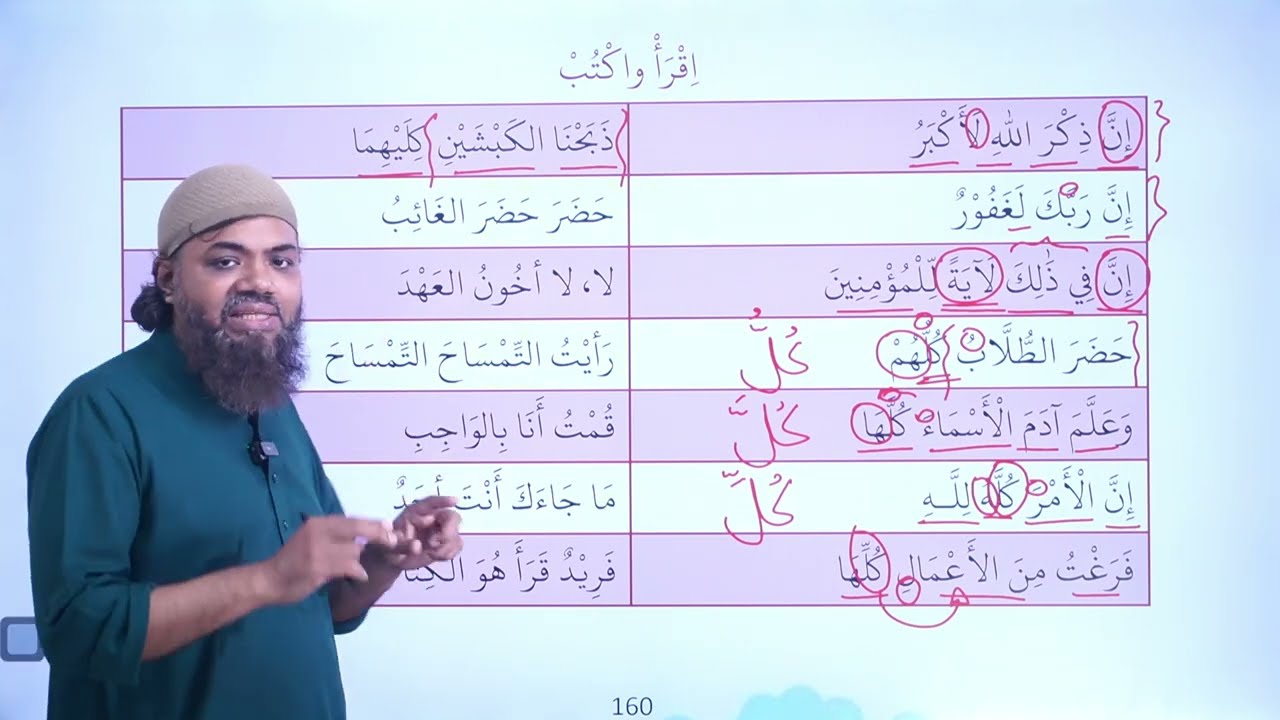 اِقْرَأْ واكْتُبْ
إِنَّ ذِكْرَ اللهِ لَأَكْبَرُ
ذَبَحْنَا الكَبْشَيْنِ كِلَيْهِمَا
إِنَّ رَبَّكَ لَغَفُوْرٌ
حَضَرَ حَضَرَ الغَائِبُ
إِنَّ فِي ذَٰلِكَ لَآيَةً لِّلْمُؤْمِنِينَ
لا، لا أخُونُ العَهْدَ
حَضَرَ الطُّلَّابُ كُلُّهُمْ كُلُّ
رَأَيْتُ التِّمْسَاحَ التِّمْسَاحَ
وَعَلَّمَ آدَمَ الْأَسْمَاءَ كُلَّهَا كُلَّ
قُمْتُ أَنَا بِالوَاجِبِ
إِنَّ الْأَمْرَ كُلَّهُ لِلَّـهِ كُلِّ
مَا جَاءَكَ أَنْتَ
فَرَغْتُ مِنَ الأَعْمَالِ كُلِّهَا
فَرِيْدٌ قَرَأَ هُوَ
160